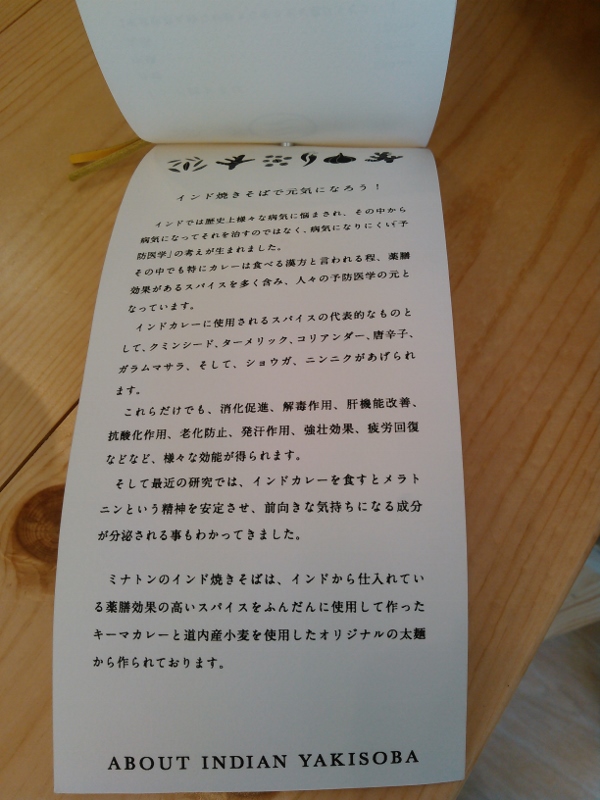 インド焼きそばで元気になろう！
インドでは歴史上様々な病気に悩まされ、その中から
病気になってそれを治すのではなく、病気になりにくい「予
防医学」の考えが生まれました。
その中でも特にカレーは食べる漢方と言われる程、薬膳
効果があるスパイスを多く含み、人々の予防医学の元と
なっています。
インドカレーに使用されるスパイスの代表的なものと
して、クミンシード、ターメリック、コリアンダー、唐辛子、
ガラムマサラ、そして、ショウガ、ニンニクがあげられ
ます。
これらだけでも、消化促進、解毒作用、肝機能改善、
抗酸化作用、老化防止、発汗作用、強壮効果、疲労回復
などなど、様々な効能が得られます。
そして最近の研究では、インドカレーを食すとメラト
ニンという精神を安定させ、前向きな気持ちになる成分
が分泌される事もわかってきました。
ミナトンのインド焼きそばは、インドから仕入れてい
る薬膳効果の高いスパイスをふんだんに使用して作った
キーマカレーと道内産小麦を使用したオリジナルの太麺
から作られております。
ABOUT INDIAN YAKISOBA